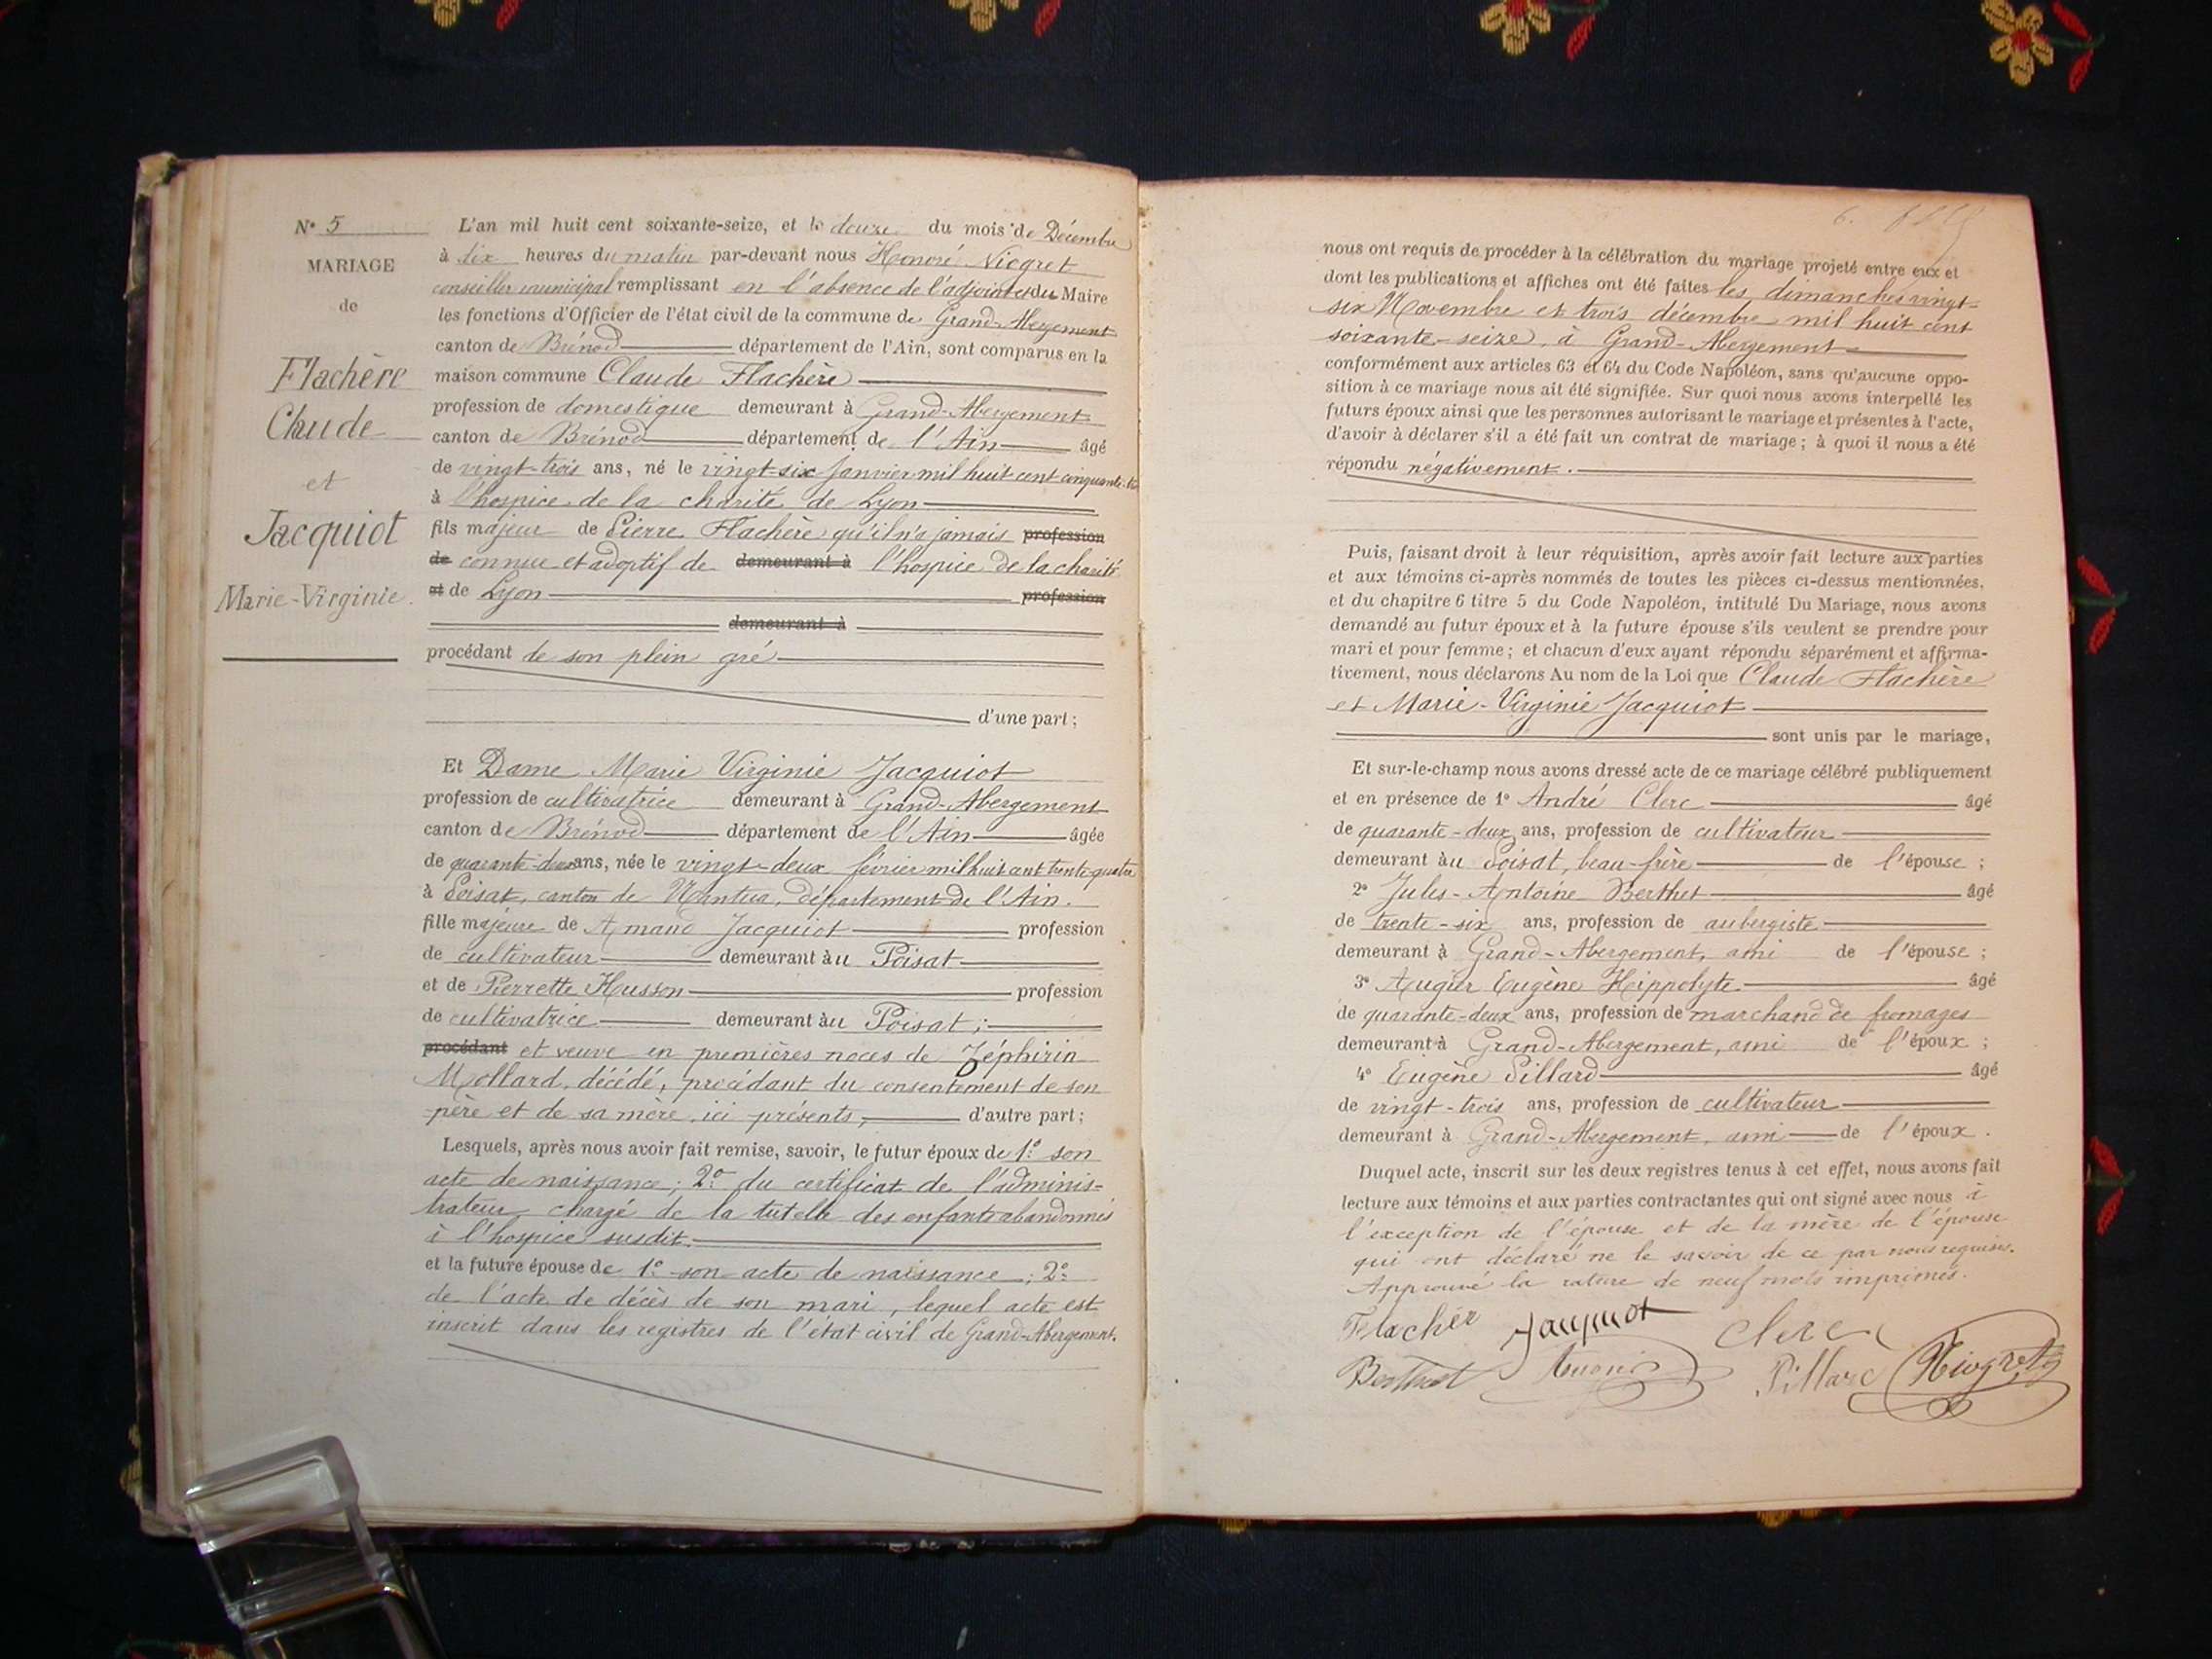 N° 5
MARIAGE
de
Flachère
Claude
et
Jacquiot
Marie-Virginie.
L'an mil huit cent soixante-seize, et le douze du mois de Décembre
à dix heures du matin par-devant nous Honoré Niogret
conseiller municipal remplissant en l'absence de l'adjoint et du Maire
les fonctions d'Officier de l'état civil de la commune de Grand-Abergement
canton de Brénod département de l'Ain, sont comparus en la
maison commune Claude Flachère
profession de domestique demeurant à Grand-Abergement
canton de Brénod département de l'Ain âgé
de vingt-trois ans, né le vingt-six Janvier mil huit cent cinquante-
à l'hospice de la charité de Lyon
fils majeur de Pierre Flachère qu'il n'a jamais profession
de connue et adoptif de demeurant à l'hospice de la charité
et de Lyon profession
demeurant à
procédant de son plein gré
d'une part ;
Et Dame Marie Virginie Jacquiot
profession de cultivatrice demeurant à Grand-Abergement
canton de Brénod département de l'Ain âgée
de quarante-deux ans, née le vingt-deux février mil huit cent trente-quatre
à Poisat, canton de Nantua, département de l'Ain.
fille majeure de Amand Jacquiot profession
de cultivateur demeurant àu Poisat
et de Pierrette Husson profession
de cultivatrice demeurant àu Poisat ;
procédant et veuve en premières noces de Zéphirin
Mollard, décédé, procédant du consentement de son
père et de sa mère, ici présents, d'autre part ;
Lesquels, après nous avoir fait remise, savoir, le futur époux de 1° son
acte de naissance ; 2° du certificat de l'adminis-
trateur chargé de la tutelle des enfants abandonnés
à l'hospice susdit.
et la future épouse de 1° son acte de naissance ; 2°
de l'acte de décès de son mari, lequel acte est
inscrit dans les registres de l'état civil de Grand-Abergement.
6.
nous ont requis de procéder à la célébration du mariage projeté entre eux et
dont les publications et affiches ont été faites les dimanches vingt-
six Novembre et trois décembre mil huit cent
soixante-seize, à Grand-Abergement
conformément aux articles 63 et 64 du Code Napoléon, sans qu'aucune oppo-
sition à ce mariage nous ait été signifiée. Sur quoi nous avons interpellé les
futurs époux ainsi que les personnes autorisant le mariage et présentes à l'acte,
d'avoir à déclarer s'il a été fait un contrat de mariage ; à quoi il nous a été
répondu négativement.
Puis, faisant droit à leur réquisition, après avoir fait lecture aux parties
et aux témoins ci-après nommés de toutes les pièces ci-dessus mentionnées,
et du chapitre 6 titre 5 du Code Napoléon, intitulé Du Mariage, nous avons
demandé au futur époux et à la future épouse s'ils veulent se prendre pour
mari et pour femme ; et chacun d'eux ayant répondu séparément et affirma-
tivement, nous déclarons Au nom de la Loi que Claude Flachère
et Marie-Virginie Jacquiot
sont unis par le mariage,
Et sur-le-champ nous avons dressé acte de ce mariage célébré publiquement
et en présence de 1° André Clerc âgé
de quarante-deux ans, profession de cultivateur
demeurant àu Poisat, beau-frère de l'épouse ;
2° Jules-Antoine Berthet âgé
de trente-six ans, profession de aubergiste
demeurant à Grand-Abergement, ami de l'épouse ;
3° Augier Eugène Hippolyte âgé
de quarante-deux ans, profession de marchand de fromages
demeurant à Grand-Abergement, ami de l'époux ;
4° Eugène Pillard âgé
de vingt-trois ans, profession de cultivateur
demeurant à Grand-Abergement, ami de l'époux.
Duquel acte, inscrit sur les deux registres tenus à cet effet, nous avons fait
lecture aux témoins et aux parties contractantes qui ont signé avec nous à
l'exception de l'épouse et de la mère de l'épouse
qui ont déclaré ne le savoir de ce par nous requises.
Approuvé la rature de neuf mots imprimés.
Flacher Jacquiot Clerc
Berthet Pillard Niogret